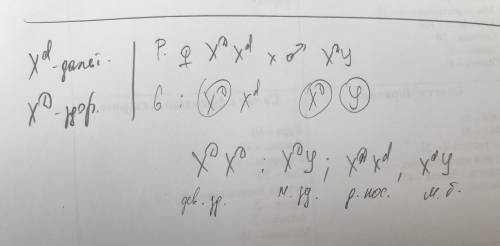 X^d - дальт. | P. ♀ X^D X^d x ♂ X^D Y
X^D - здор. | G : X^D X^d X^D Y
X^D X^D : X^D Y ; X^D X^d , X^d Y
дев. зд. м. зд. р. нос. м. б.